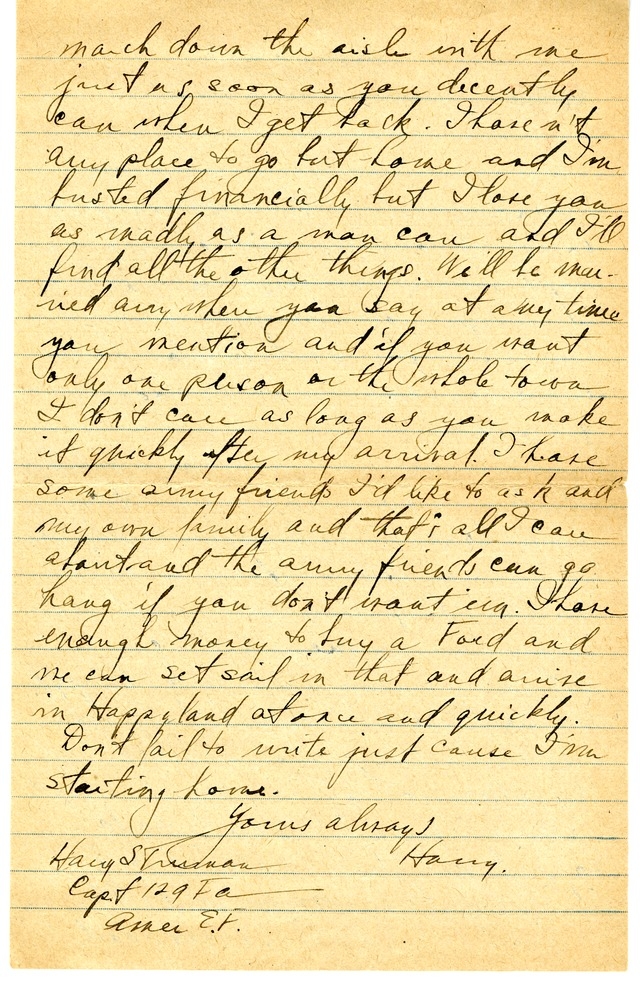 march down the aisle with me
just as soon as you decently
can when I get back. I haven't
any place to go but home and I'm
busted financially but I love you
as madly as a man can and I'll
find all the other things. We'll be mar-
ried anywhere you say at any time
you mention and if you want
only one person or the whole town
I don't care as long as you make
it quickly after my arrival. I have
some army friends I'd like to ask and
my own family and that's all I care
about and the army friends can go
hang if you don't want 'em. I have
enough money to buy a Ford and
we can set sail in that and arrive
in Happyland at once and quickly.
Don't fail to write just cause I'm
starting home.
Yours always
Harry.
Harry S Truman
Capt 129 Fa
Amer E.F.